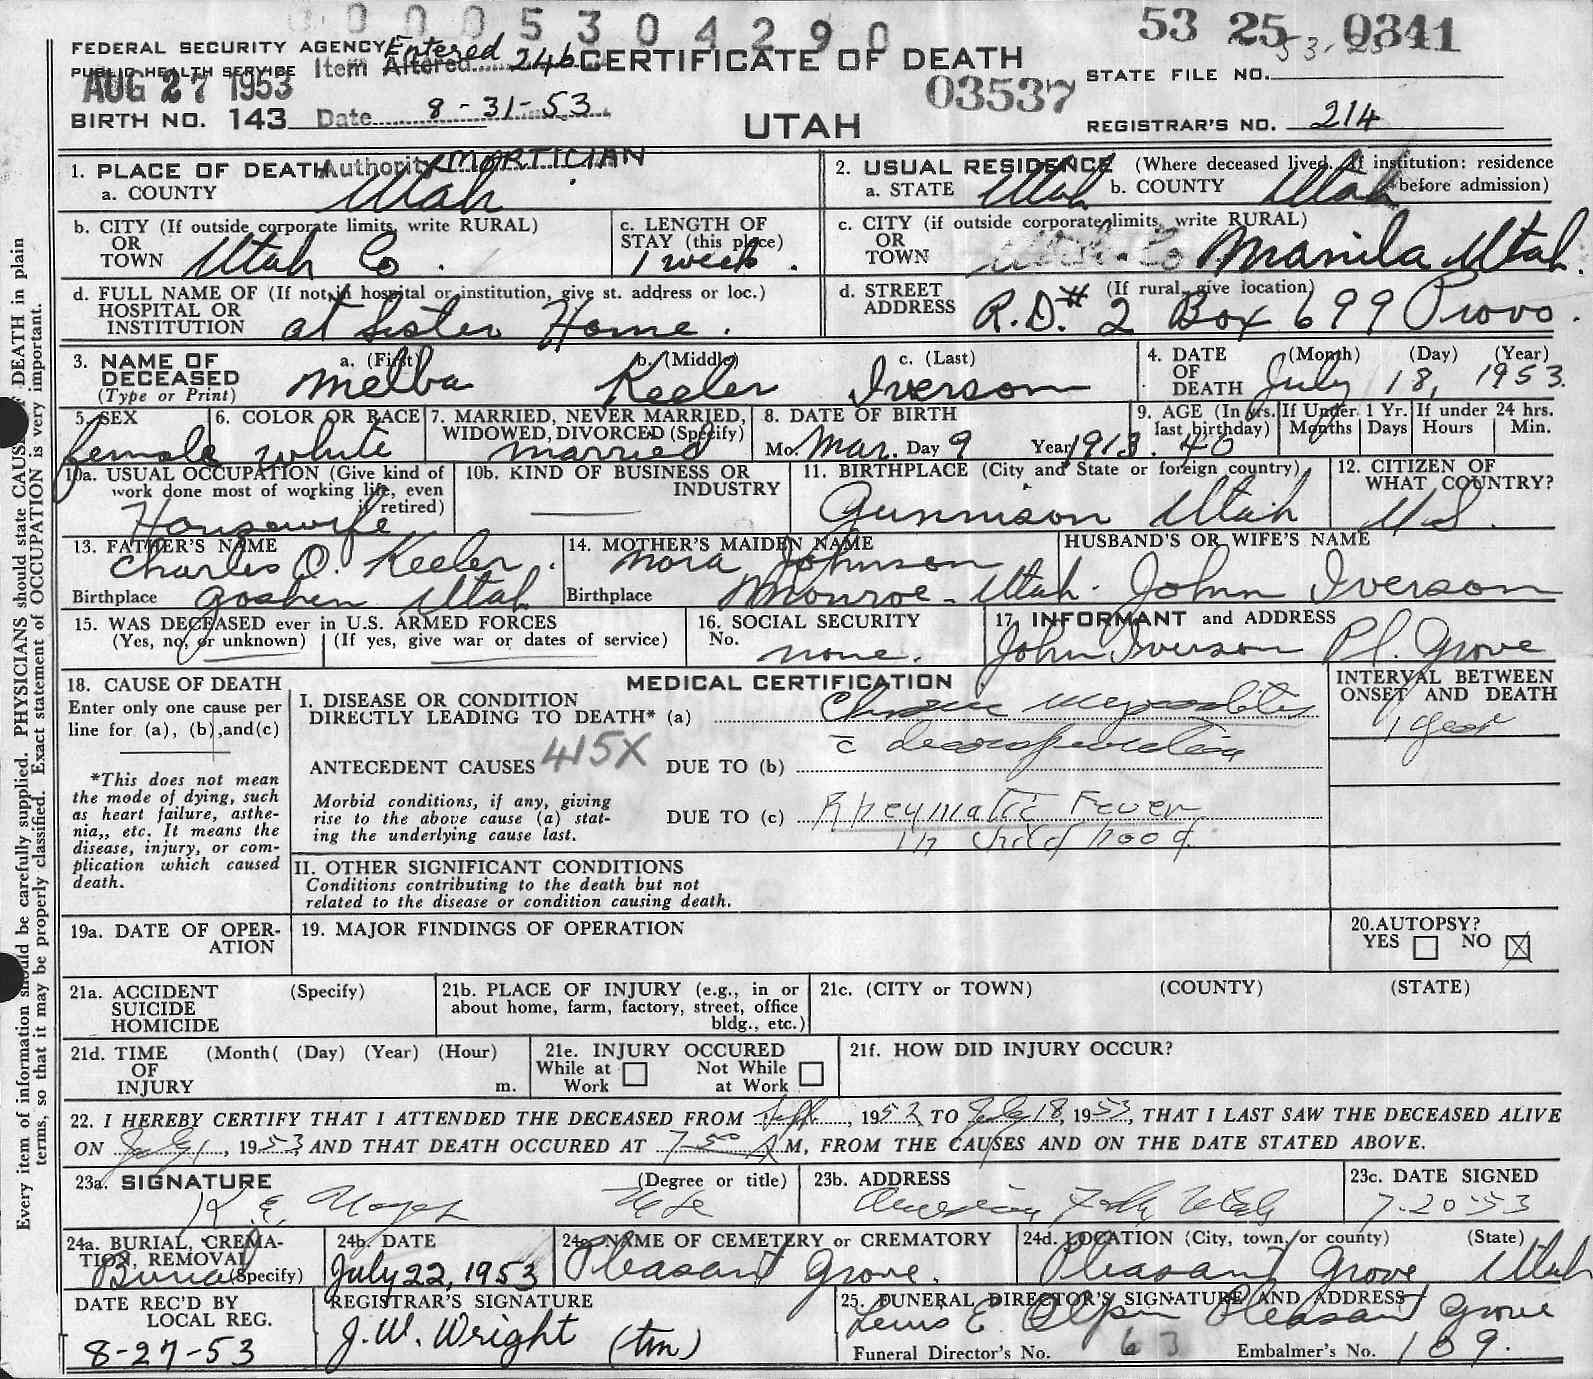 0005304290
53 25 0341
FEDERAL SECURITY AGENCY
PUBLIC HEALTH SERVICE
Entered
Item Altered 24b
CERTIFICATE OF DEATH
STATE FILE NO.
AUG 27 1953
03537
BIRTH NO. 143
Date 8-31-53
UTAH
REGISTRAR'S NO. 214
Authority MORTICIAN
1. PLACE OF DEATH
a. COUNTY Utah
2. USUAL RESIDENCE (Where deceased lived. If institution: residence before admission)
a. STATE Utah b. COUNTY Utah
b. CITY (If outside corporate limits, write RURAL)
OR TOWN Utah Co.
c. LENGTH OF STAY (this place) 1 week.
c. CITY (if outside corporate limits, write RURAL)
OR TOWN Utah Co Manila Utah.
d. FULL NAME OF (If not in hospital or institution, give st. address or loc.)
HOSPITAL OR INSTITUTION at Sister Home.
d. STREET ADDRESS (If rural, give location)
R.D.# 2 Box 699 Provo.
3. NAME OF DECEASED (Type or Print)
a. (First) b. (Middle) c. (Last)
Melba Keeler Iverson
4. DATE OF DEATH (Month) (Day) (Year)
July 18, 1953.
5. SEX female
6. COLOR OR RACE white
7. MARRIED, NEVER MARRIED, WIDOWED, DIVORCED (Specify) married
8. DATE OF BIRTH
Mo. Mar. Day 9 Year 1913.
9. AGE (In yrs. last birthday) 40
If Under 1 Yr. Months Days
If under 24 hrs. Hours Min.
10a. USUAL OCCUPATION (Give kind of work done most of working life, even if retired) Housewife
10b. KIND OF BUSINESS OR INDUSTRY
11. BIRTHPLACE (City and State or foreign country)
Gunnison Utah
12. CITIZEN OF WHAT COUNTRY? U.S.
13. FATHER'S NAME Charles O. Keeler.
Birthplace Goshen Utah
14. MOTHER'S MAIDEN NAME Nora Johnson
Birthplace Monroe - Utah.
HUSBAND'S OR WIFE'S NAME John Iverson
15. WAS DECEASED ever in U.S. ARMED FORCES
(Yes, no, or unknown) (If yes, give war or dates of service)
16. SOCIAL SECURITY No. none.
17. INFORMANT and ADDRESS
John Iverson Pl. Grove
18. CAUSE OF DEATH
Enter only one cause per line for (a), (b), and (c)
*This does not mean the mode of dying, such as heart failure, asthenia,, etc. It means the disease, injury, or complication which caused death.
MEDICAL CERTIFICATION
INTERVAL BETWEEN ONSET AND DEATH
I. DISEASE OR CONDITION DIRECTLY LEADING TO DEATH* (a) Chronic
1 year
ANTECEDENT CAUSES 415X DUE TO (b)
Morbid conditions, if any, giving rise to the above cause (a) stating the underlying cause last.
DUE TO (c) Rheymatic Fever
in childhood.
II. OTHER SIGNIFICANT CONDITIONS
Conditions contributing to the death but not related to the disease or condition causing death.
19a. DATE OF OPERATION
19. MAJOR FINDINGS OF OPERATION
20. AUTOPSY?
YES NO X
21a. ACCIDENT SUICIDE HOMICIDE (Specify)
21b. PLACE OF INJURY (e.g., in or about home, farm, factory, street, office bldg., etc.)
21c. (CITY or TOWN) (COUNTY) (STATE)
21d. TIME OF INJURY (Month( (Day) (Year) (Hour) m.
21e. INJURY OCCURED
While at Work Not While at Work
21f. HOW DID INJURY OCCUR?
22. I HEREBY CERTIFY THAT I ATTENDED THE DECEASED FROM , 1952 TO July 18, 1953, THAT I LAST SAW THE DECEASED ALIVE
ON July 1, 1953 AND THAT DEATH OCCURED AT 7:50 A M, FROM THE CAUSES AND ON THE DATE STATED ABOVE.
23a. SIGNATURE (Degree or title)
K. E.
23b. ADDRESS American Fork Utah
23c. DATE SIGNED 7-20-53
24a. BURIAL, CREMATION, REMOVAL (Specify) Burial
24b. DATE July 22, 1953
24c. NAME OF CEMETERY OR CREMATORY Pleasant Grove.
24d. LOCATION (City, town, or county) (State)
Pleasant Grove, Utah
DATE REC'D BY LOCAL REG. 8-27-53
REGISTRAR'S SIGNATURE J.W. Wright (tm)
25. FUNERAL DIRECTOR'S SIGNATURE AND ADDRESS
Lewis E. Olpin Pleasant Grove
Funeral Director's No. 63 Embalmer's No. 109.
Every item of information should be carefully supplied. PHYSICIANS should state CAUSE OF DEATH in plain
terms, so that it may be properly classified. Exact statement of OCCUPATION is very important.